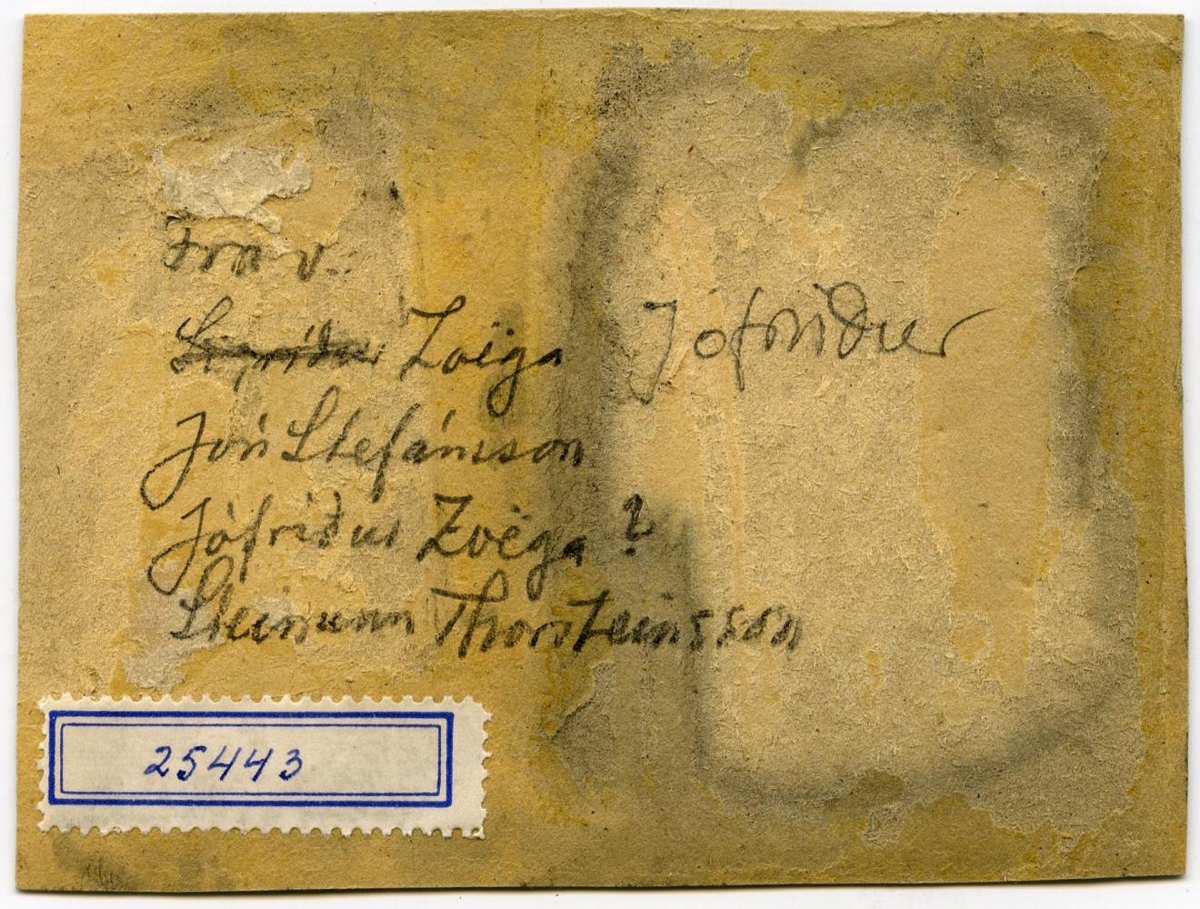 Frá v.:
Sigríður Zoëga Jófríður
Jón Stefánsson
Jófríður Zoëga ?
Steinunn Thorsteinsson
25443